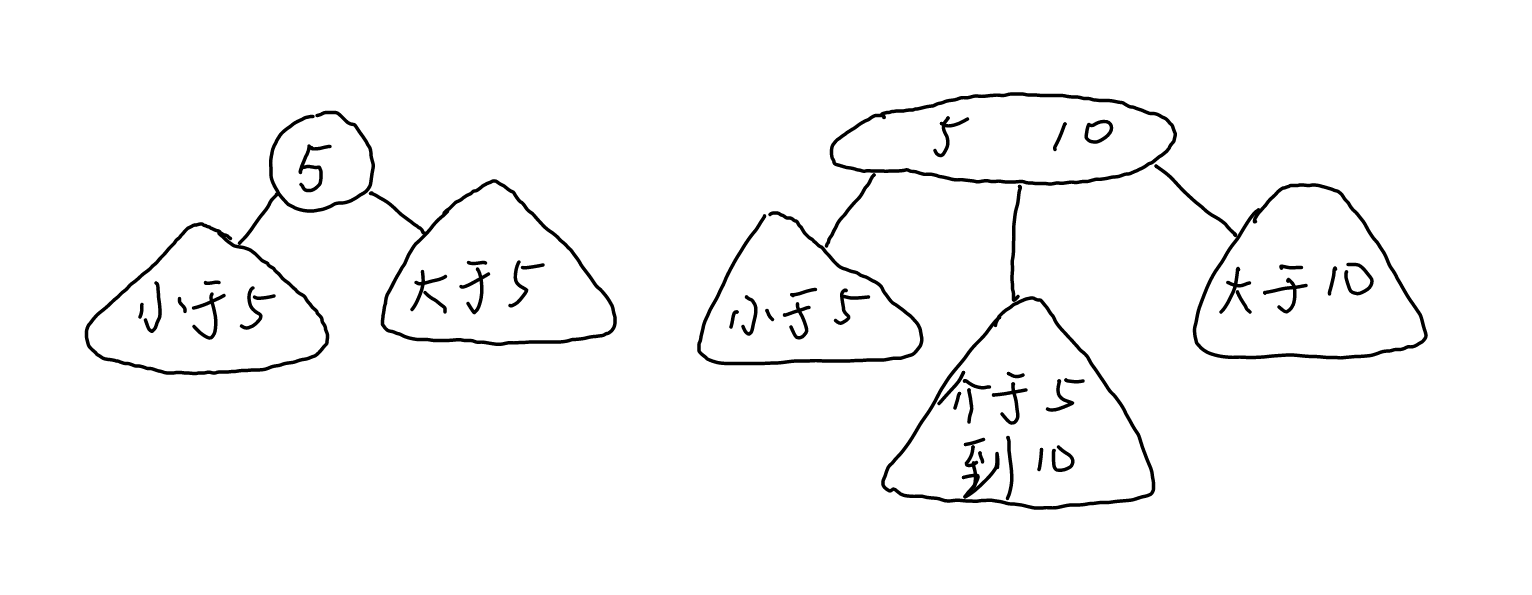 5
小于5
大于5
5 10
小于5
介于5
到10
大于10